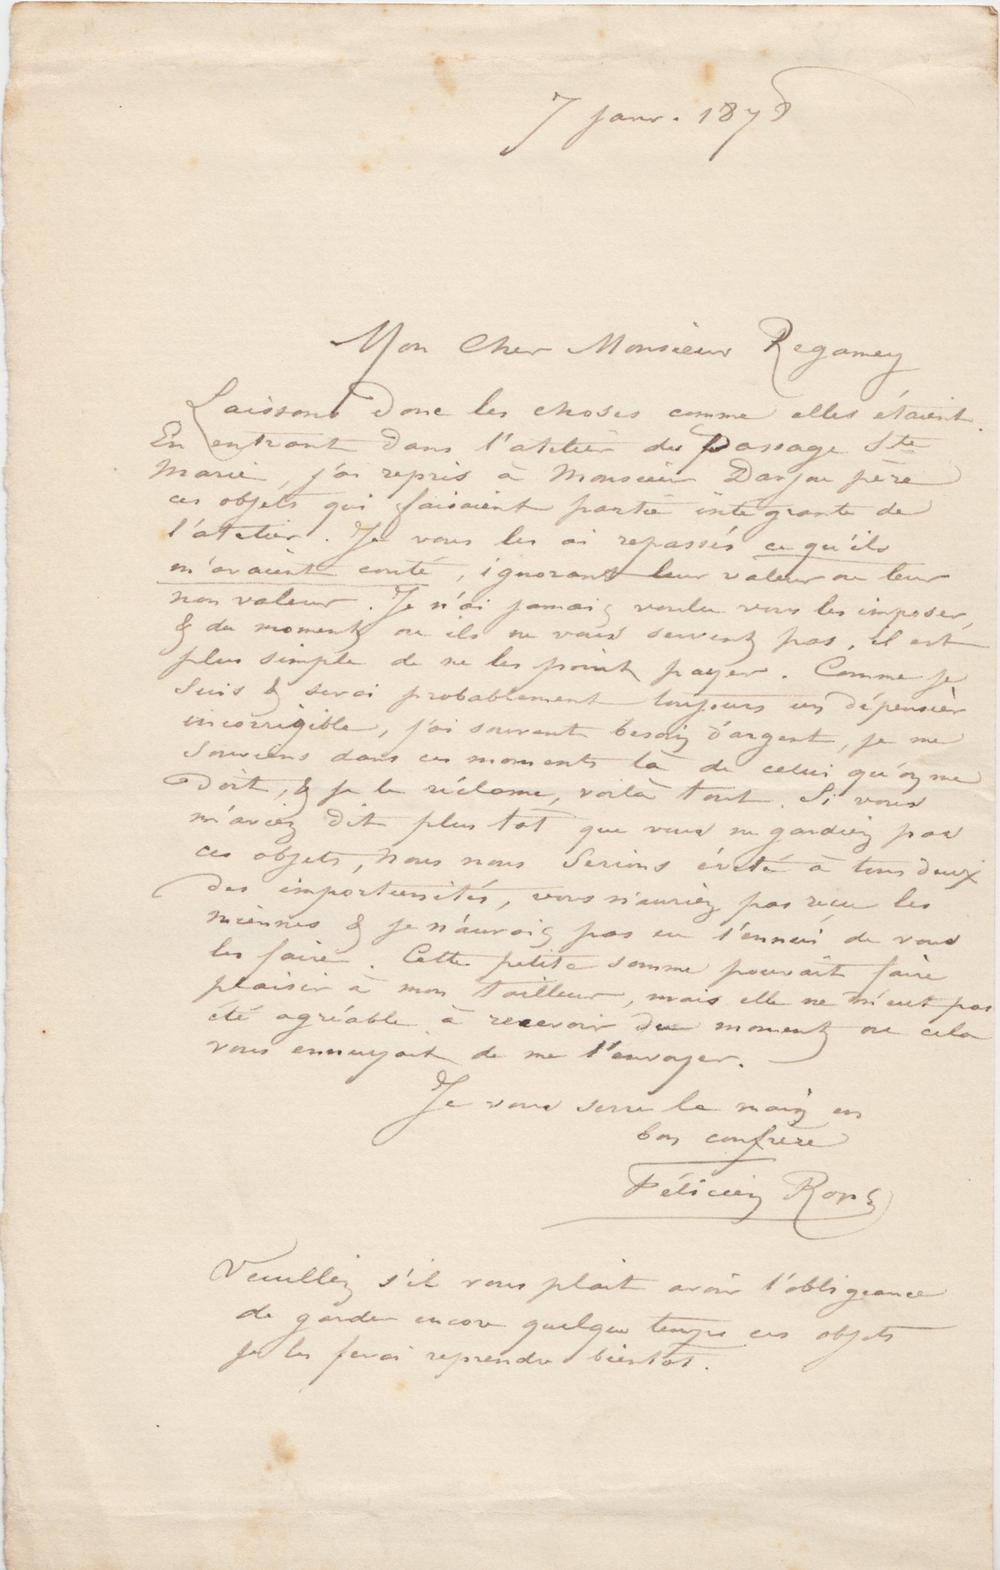 7 janv. 1878
Mon Cher Monsieur Regamey
Laissons donc les choses comme elles étaient.
En entrant dans l'atelier du passage Ste
Marie, j'ai repris à Monsieur Danjou père
ces objets qui faisaient partie intégrante de
l'atelier. Je vous les ai repassés ce qu'ils
m'avaient couté, ignorant leur valeur ou leur
non valeur. Je n'ai jamais voulu vous les imposer,
& du moment ou ils ne vous servent pas, il est
plus simple de ne les point payer. Comme je
suis & serai probablement toujours un dépensier
incorrigible, j'ai souvent besoin d'argent, je me
souviens dans ces moments là de celui qu'on me
doit, & je le réclame, voilà tout. Si vous
m'aviez dit plus tot que vous ne gardiez pas
ces objets, nous nous serions évité à tous deux
des importunités, vous n'auriez pas reçu les
miennes & je n'aurais pas eu l'ennui de vous
les faire. Cette petite somme pouvait faire
plaisir à mon tailleur, mais elle ne m'eut pas
été agréable à recevoir du moment ou cela
vous ennuyait de me l'envoyer.
Je vous serre la main en
bon confrère
Félicien Rops
Veuillez s'il vous plait avoir l'obligeance
de garder encore quelque temps ces objets
je les ferai reprendre bientot.